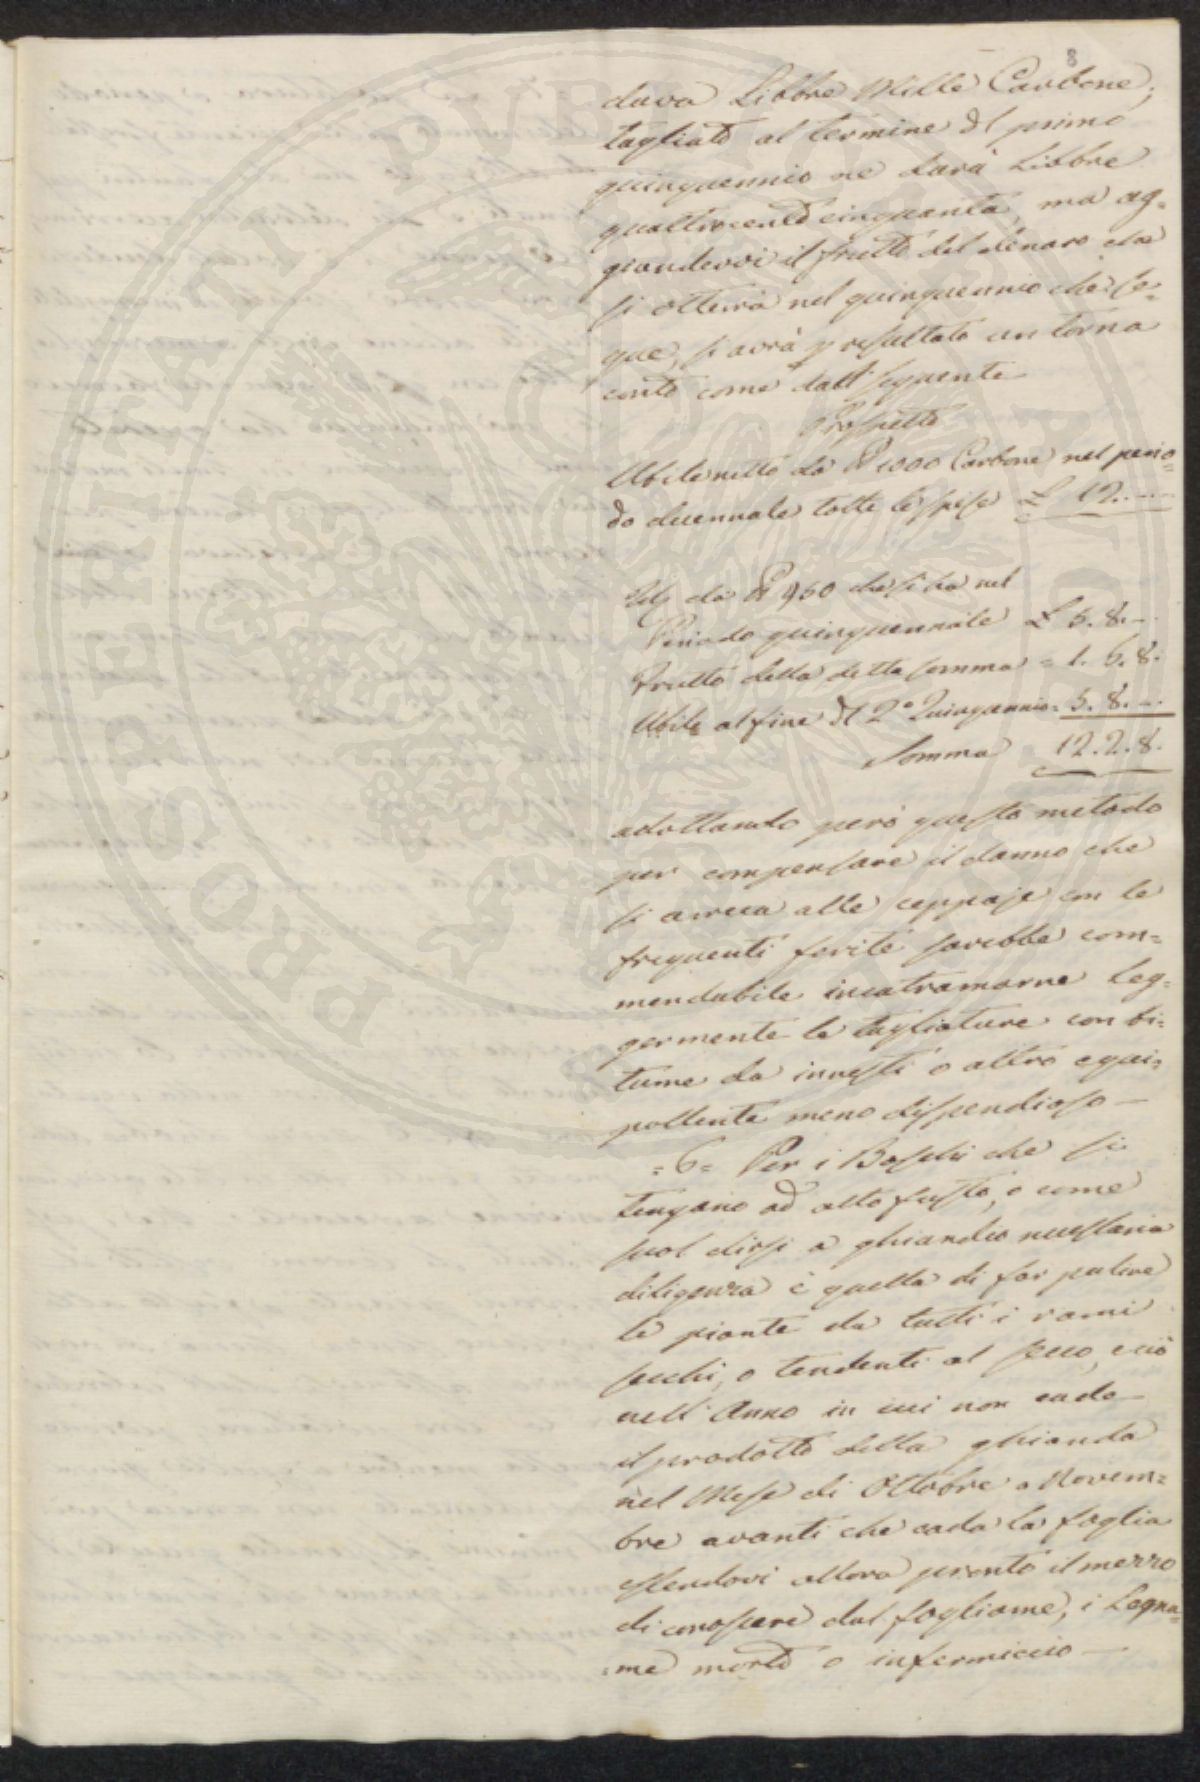 8
dava Libbre Mille Carbone,
tagliato al termine dl primo
quinquennio ne darà Libbre
quattrocento cinquanta, ma ag-
giundervi il frutto del denaro che
si otterrà nel quinquennio che se-
gue, si avrà p resultato un torna
conto come dall' seguente
Prospetto
Utile netto da lb 1000 Carbone nel perio-
do decennale tolte le spese £ 12.-.-
Id da lb 450 che si ha nel
Periodo quinquennale £ 5.8.-
Frutto della detta somma = 1.6.8.
Utile al fine dl 2° Quinquennio = 5.8.-
Somma 12.2.8.
adottando però questo metodo
per compensare il danno che
si arreca alle ceppaje con le
frequenti ferite sarebbe com-
mendabile incatramarne leg-
germente le tagliature con bi-
tume da innesti o altro equi-
pollente meno dispendioso —
=6= Per i Boschi che si
tengano ad alto fusto, o come
suol dirsi a ghiandio necessaria
diligenza è quella di far pulire
le piante da tutti i rami
secchi, o tendenti al secco, e ciò
nell' Anno in cui non cada
il prodotto della ghianda
nel Mese di Ottobre o Novem-
bre avanti che cada la foglia
essendovi allora pronto il mezzo
di conoscere dal fogliame, i Legna-
=me morto o infermiccio —
PROSPERITATI PVBLICAE